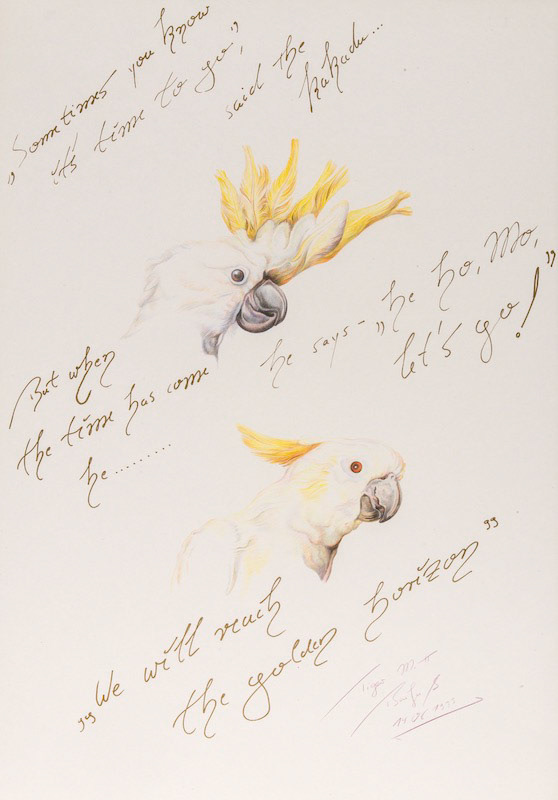 „Sometimes you know
it's time to go,"
said the
kakadu...
But when
the time has come
he..........
he says - „he ho, Mo,
let's go!"
„We will reach
the golden horizon"